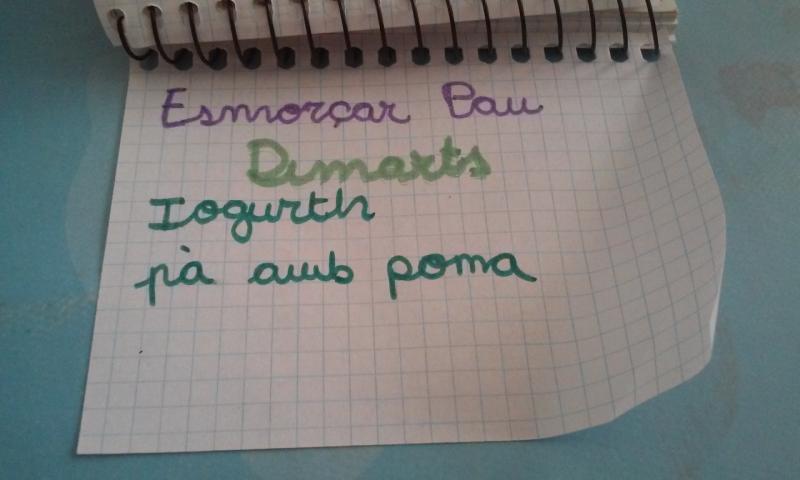 Esmorçar Pau
Dimarts
Iogurth
pà amb poma